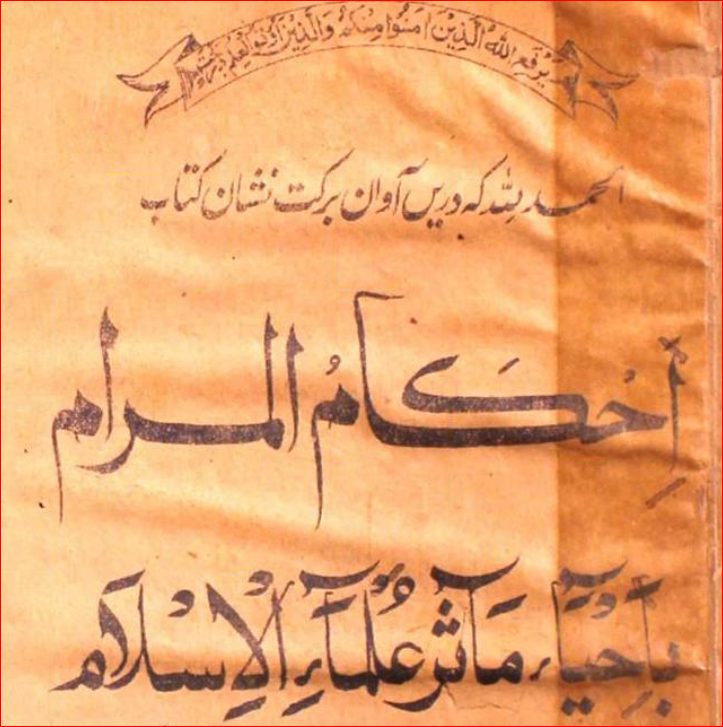 يرفع الله الذين امنوا منكم والذين اوتوا العلم درجات
الحمد لله که دریں آوان برکت نشان کتاب
إِحْكَامُ المرام
بِأِحْيَآءِ مَآثرِ عُلَمَآءِ الْاِسْلَام